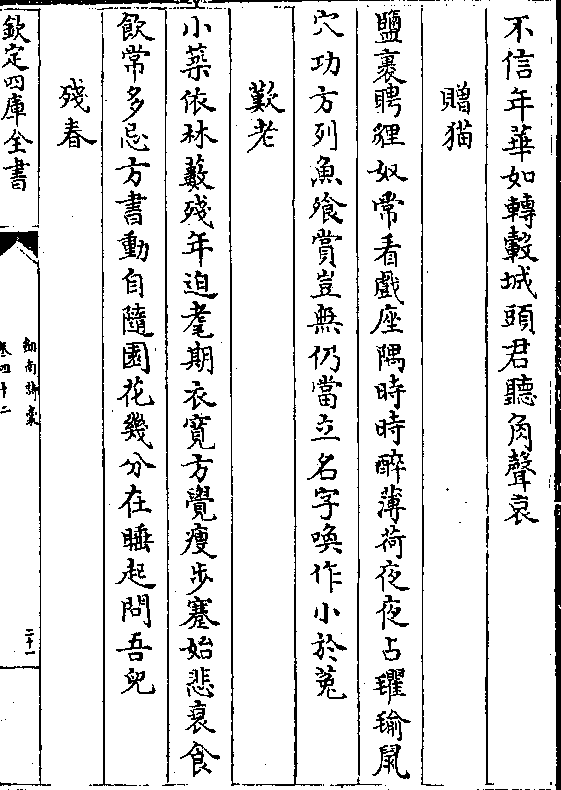 不信年華如轉轂城頭君聽角聲哀
贈猫
鹽裹聘貍奴常看戲座隅時時醉薄荷夜夜占氍毹鼠
穴功方列魚飱賞豈無仍當立名字喚作小於菟
歎老
小築依林藪殘年迫耄期衣寛方覺瘦步蹇始悲衰食
飲常多忌方書動自隨園花幾分在睡起問吾兒
殘春
欽定四庫全書
劍南詩稾
卷四十二
二十一